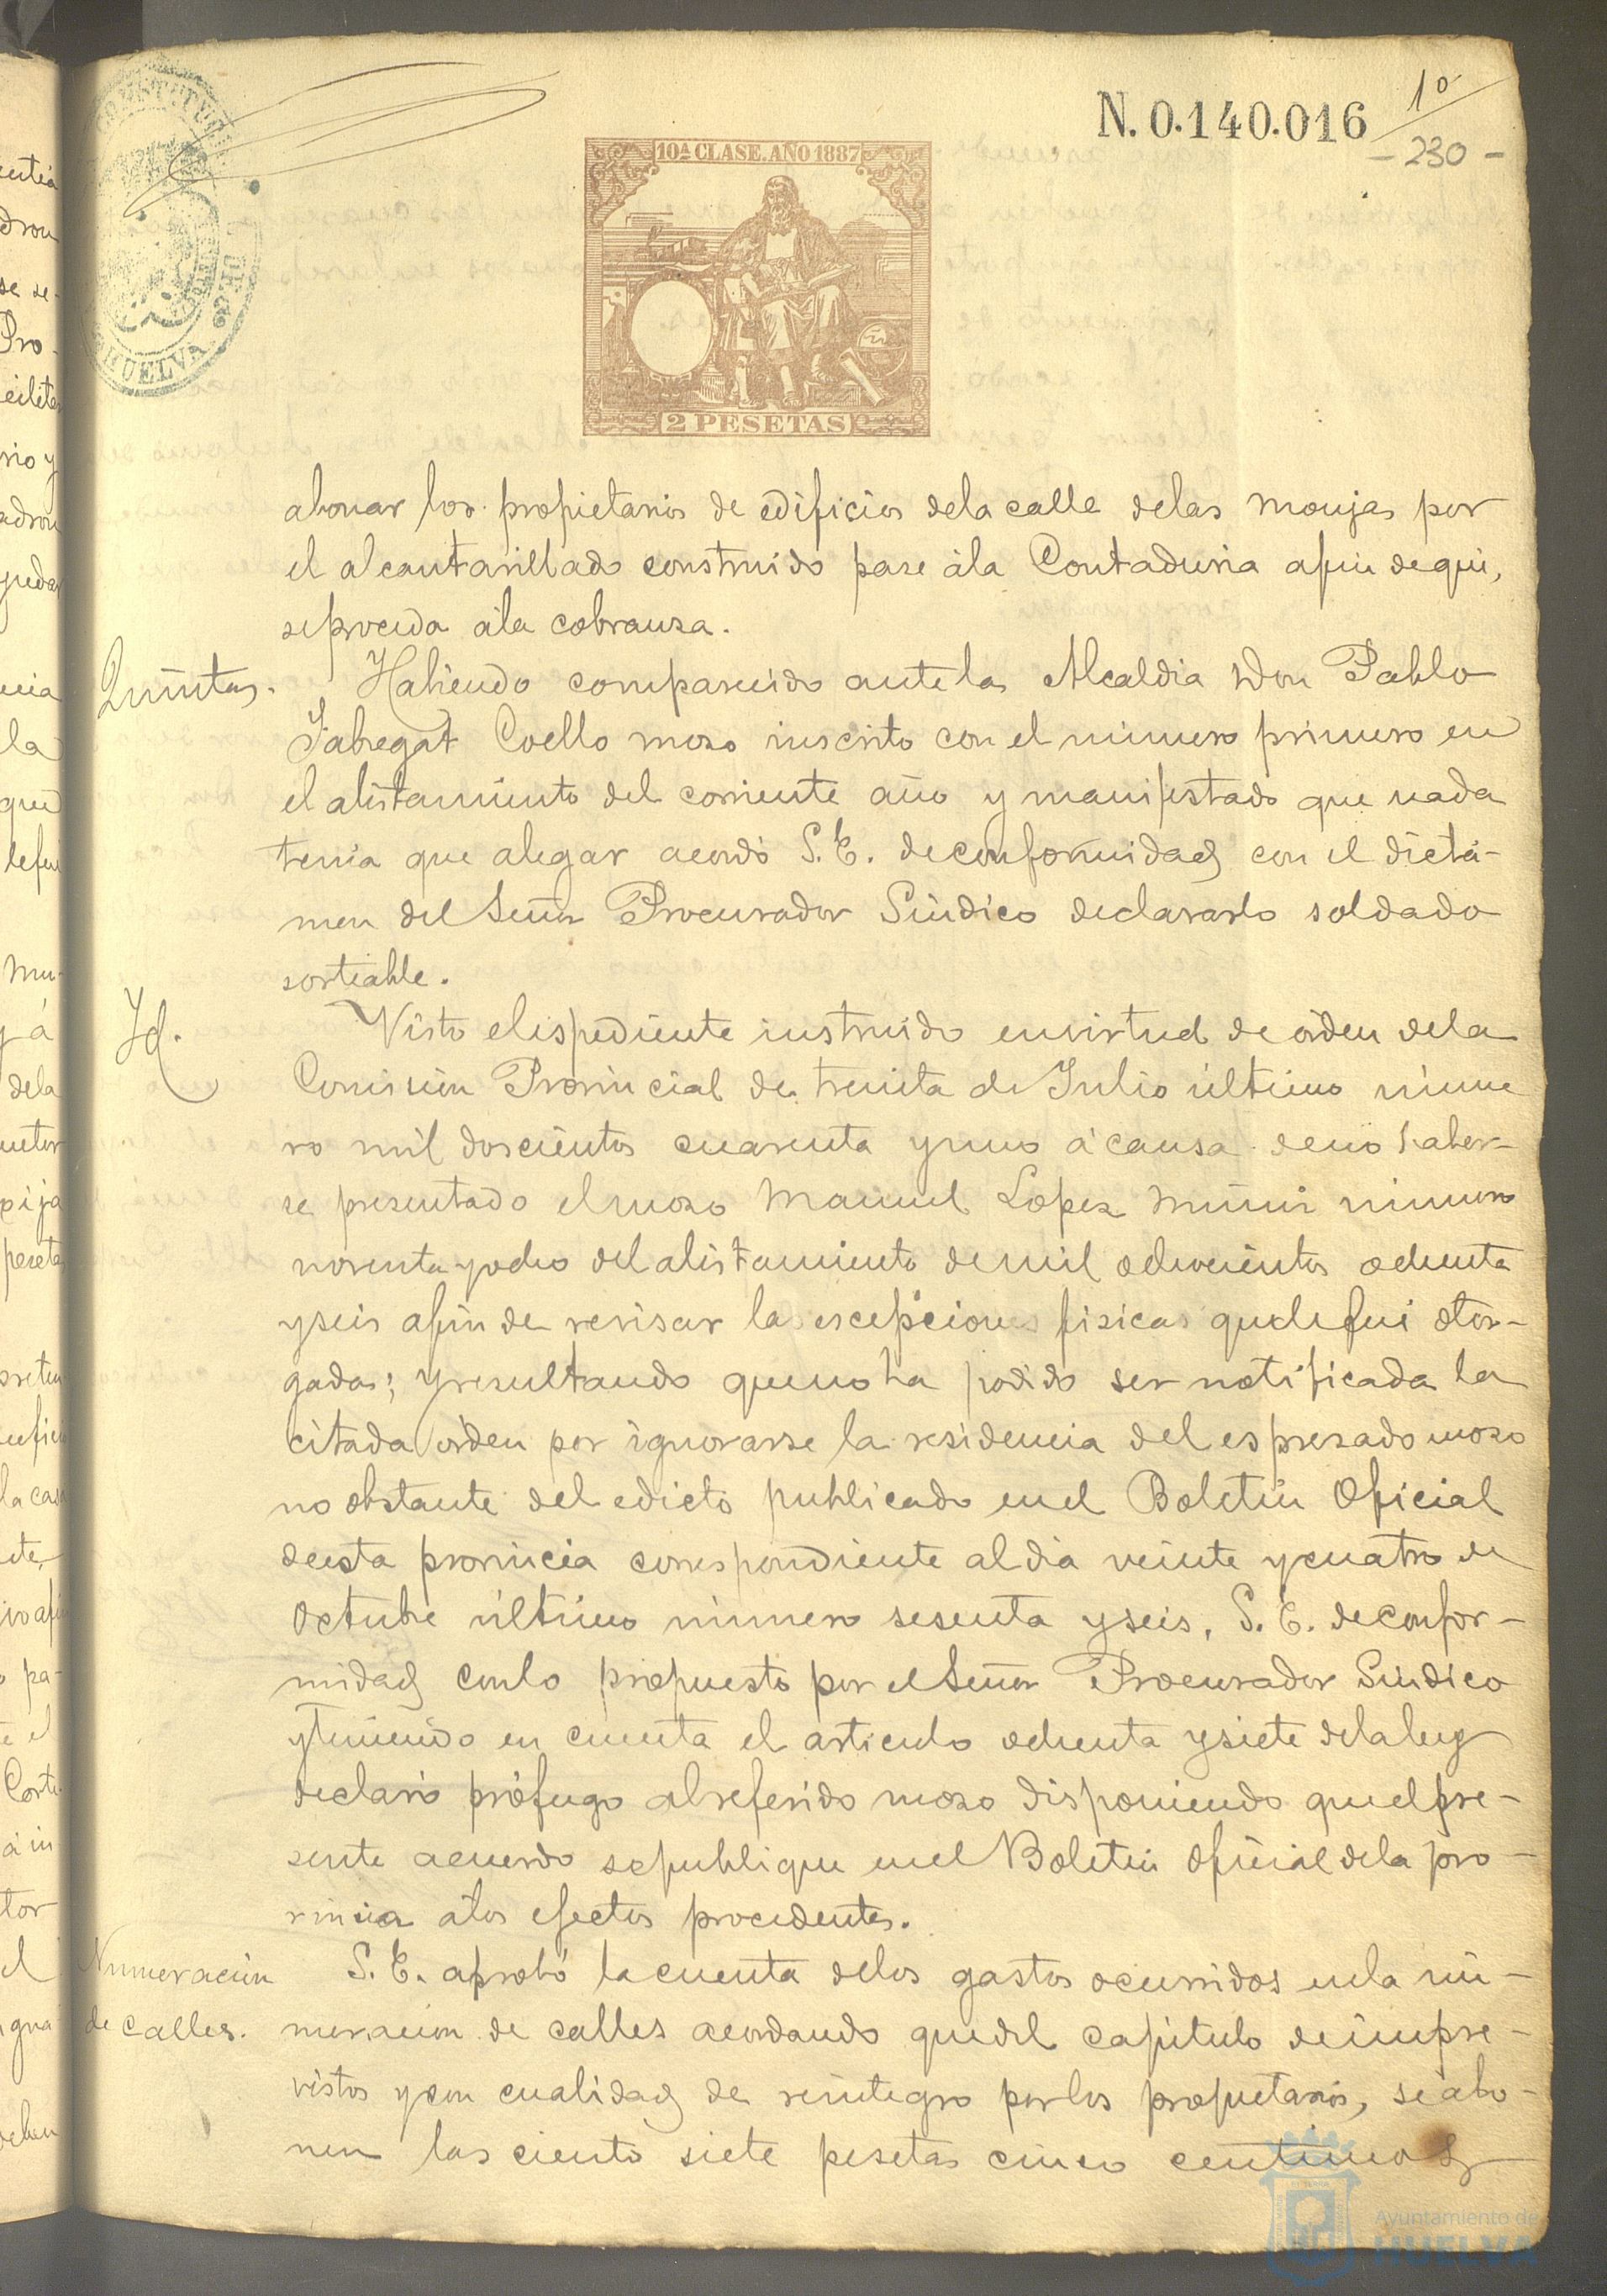 N. 0.140.016
1º
- 230 -
10ª CLASE. AÑO 1887
2 PESETAS
HUELVA
abonar los propietarios de edificios dela calle delas Monjas por
el alcantarillado construido pase ála Contaduria afin de que,
se proceda ála cobranza.
Quintas.
Habiendo comparecido ante la Alcaldia Don Pablo
Fabregat Coello mozo inscrito con el número primero en
el alistamiento del corriente año y manifestado que nada
tenia que alegar acordó S. E. de conformidad con el dictá-
men del Señor Procurador Síndico declararlo soldado
sorteable.
Id.
Visto el espediente instruido en virtud de órden dela
Comision Provincial de treinta de Julio último núme
ro mil doscientos cuarenta y uno á causa de no haber-
se presentado el mozo Manuel Lopez número
noventa y ocho del alistamiento de mil ochocientos ochenta
y seis afin de revisar las escepciones fisicas que le fueron otor-
gadas; y resultando que no ha podido ser notificada la
citada órden por ignorarse la residencia del espresado mozo
no obstante del edicto publicado en el Boletin Oficial
de esta provincia correspondiente al dia veinte y cuatro de
Octubre último número sesenta y seis, S. E. de confor-
midad con lo propuesto por el Señor Procurador Síndico
y teniendo en cuenta el articulo ochenta y siete dela ley
declaró prófugo al referido mozo disponiendo que el pre-
sente acuerdo se publique en el Boletin Oficial dela pro-
vincia á los efectos procedentes.
Numeracion
de calles.
S. E. aprobó la cuenta delos gastos ocurridos en la nu-
meracion de calles acordando que del capitulo de impre-
vistos y con cualidad de reintegro por los propietarios, se abo-
nen las ciento siete pesetas cinco centimos
Ayuntamiento de
HUELVA